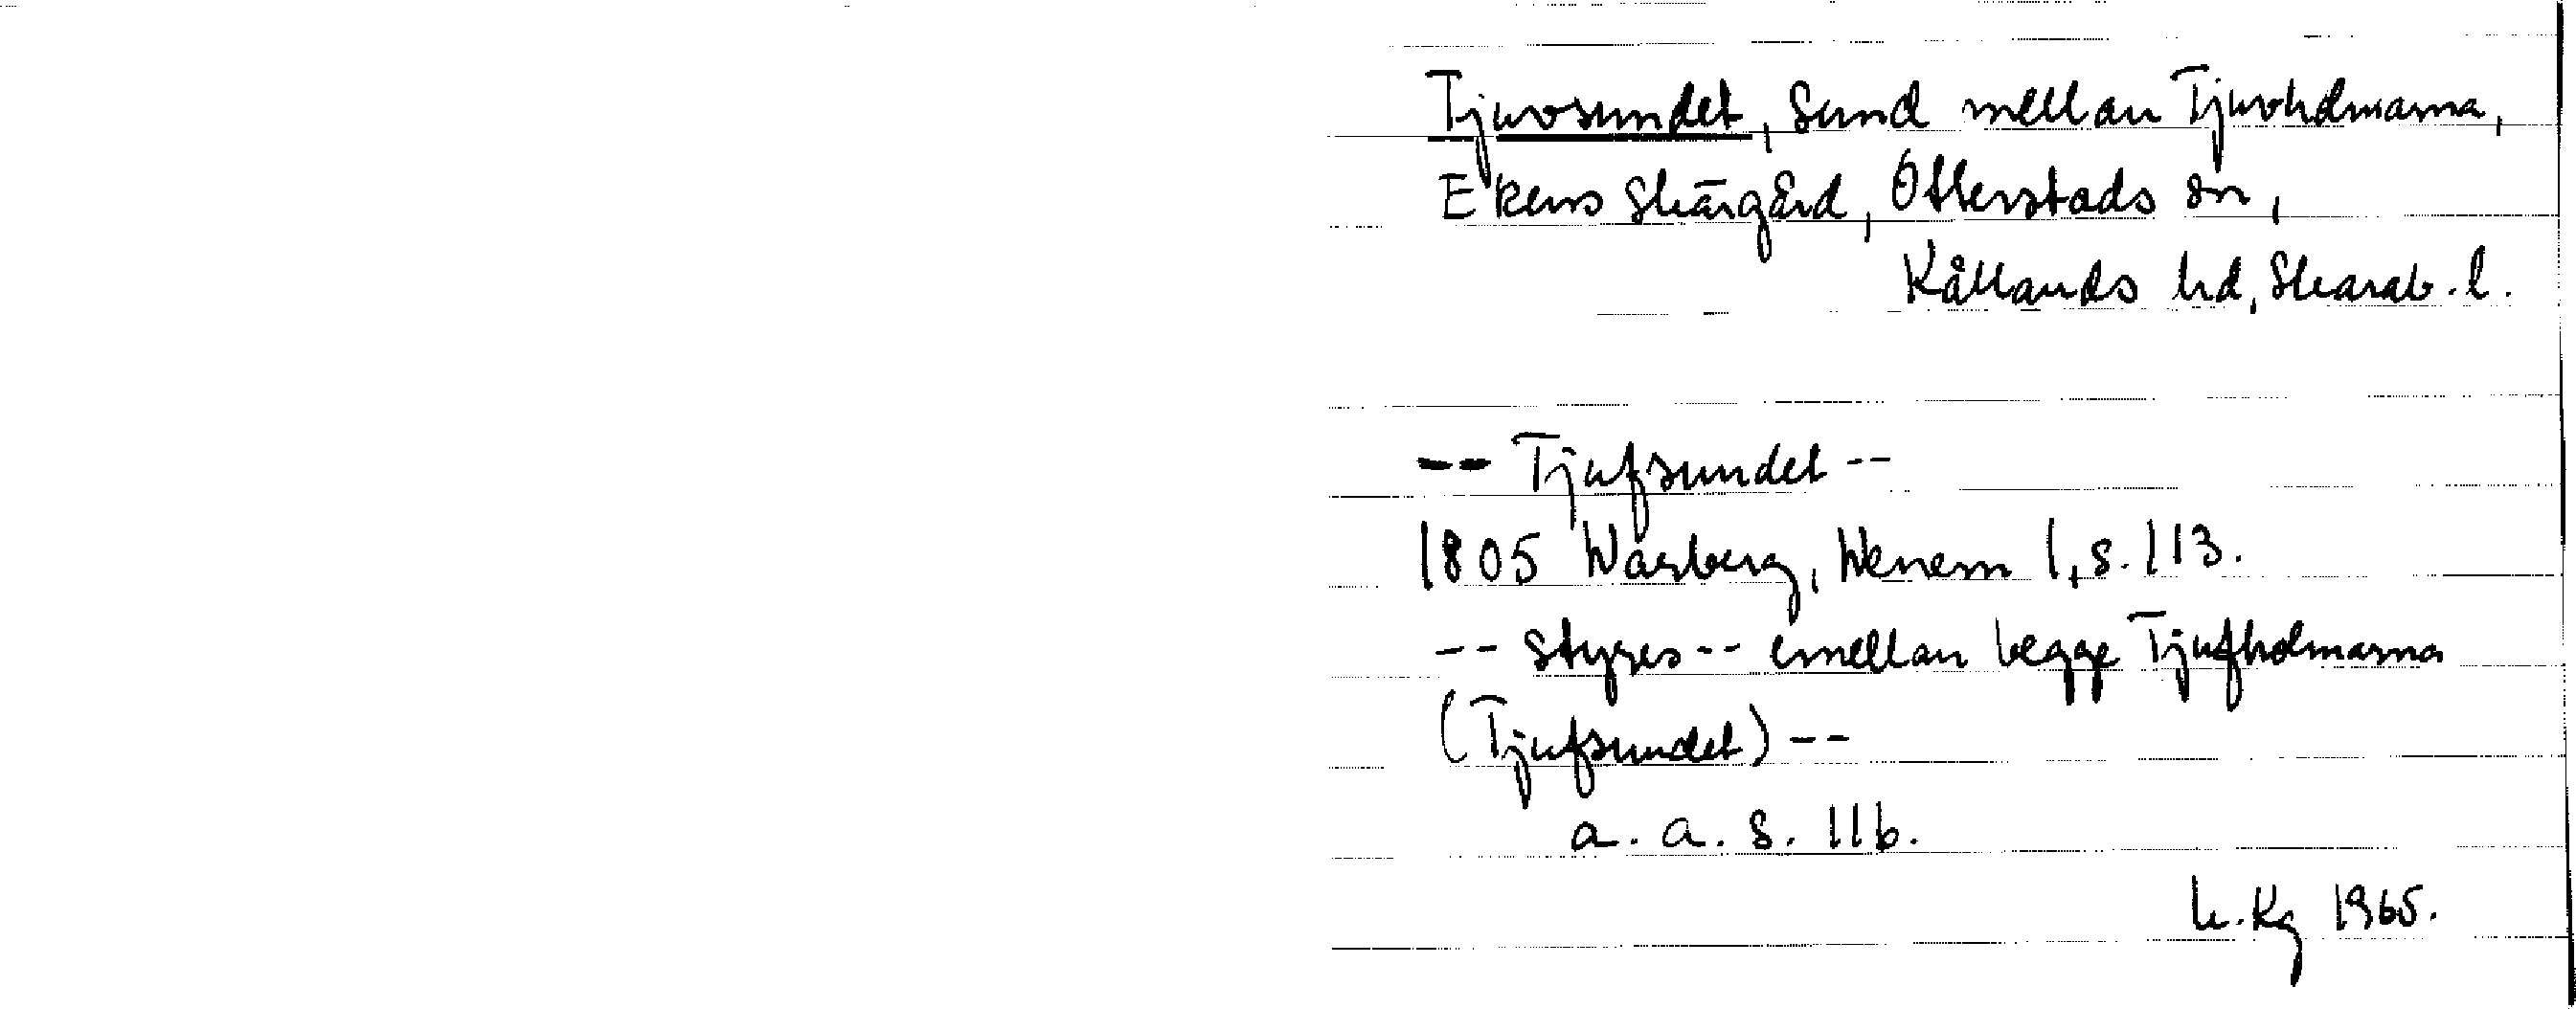 Tjuvsundet, sund mellan Tjuvholmarna,
Ekens Skärgård, Otterstads sn,
Kållands hd, Skarab. l.
-- Tjufsundet --
1805 Warberg, Wenern I, s. 113.
-- styres -- emellan begge Tjufholmarna
(Tjufsundet) --
a. a. s. 116.
Kg 1965.